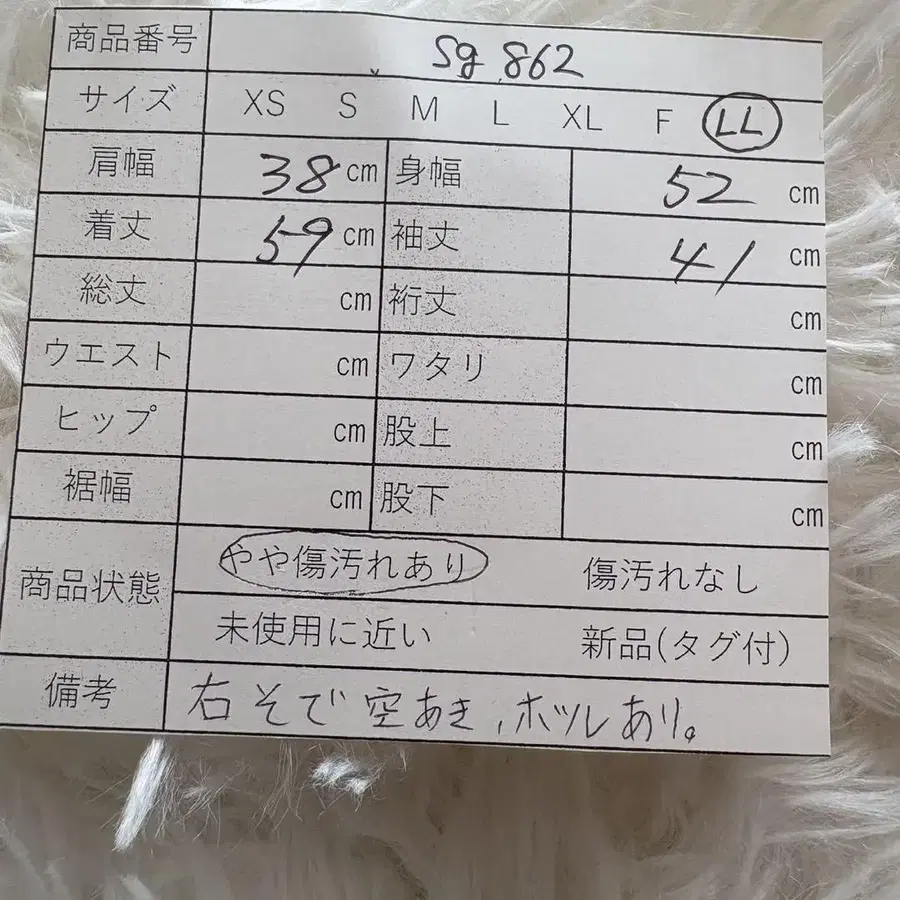 商品番号 Sg 862
サイズ XS S M L XL F LL
肩幅 38 cm 身幅 52 cm
着丈 59 cm 袖丈 41 cm
総丈 cm 裄丈 cm
ウエスト cm ワタリ cm
ヒップ cm 股上 cm
裾幅 cm 股下 cm
商品状態 やや傷汚れあり 傷汚れなし
未使用に近い 新品(タグ付)
備考 右そで空あき、ホツレあり。